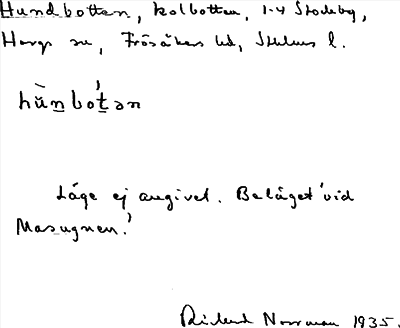 Hundbotten, kolbotten, 1-4 Stockby,
Hargs sn, Frösåkers hd, Sthlms l.
hùn̠bót̠ən
Läge ej angivet. Beläget 'vid
Masugnen.'
Rickard Norrman 1935.